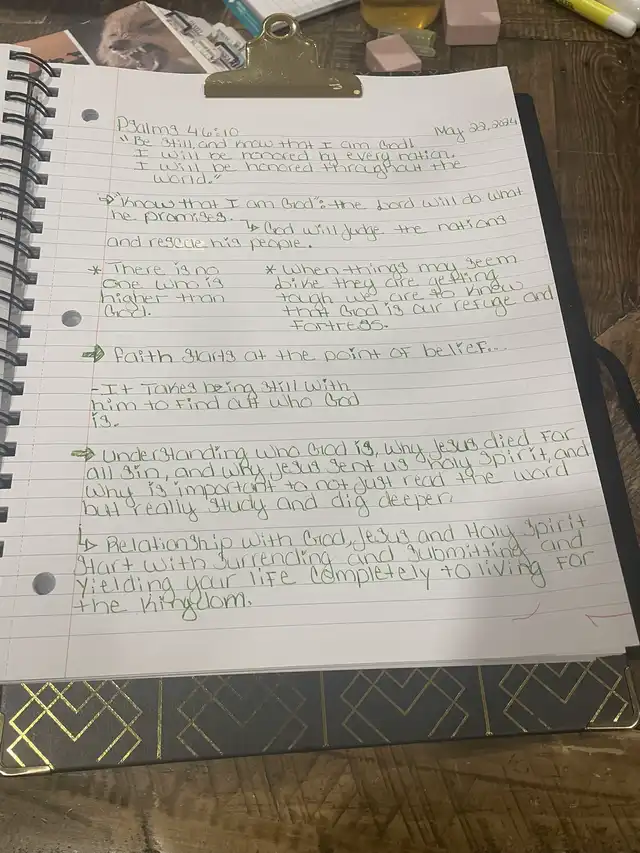 Psalms 46:10 May 23, 2024
"Be still, and know that I am God!
I will be honored by every nation.
I will be honored throughout the
world."
"Know that I am God": the Lord will do what
he promises. ↳ God will judge the nations
and rescue his people.
* There is no
one who is
higher than
God.
* When things may seem
like they are getting
tough we are to know
that God is our refuge and
Fortress.
→ faith starts at the point of belief...
- It Takes being still with
him to find out who God
is.
→ Understanding who God is, why Jesus died for
all sin, and why Jesus sent us holy spirit, and
why is important to not just read the word
but really study and dig deeper.
↳ Relationship with God, Jesus and Holy Spirit
start with surrending and submitting and
yielding your life completely to living for
the Kingdom.